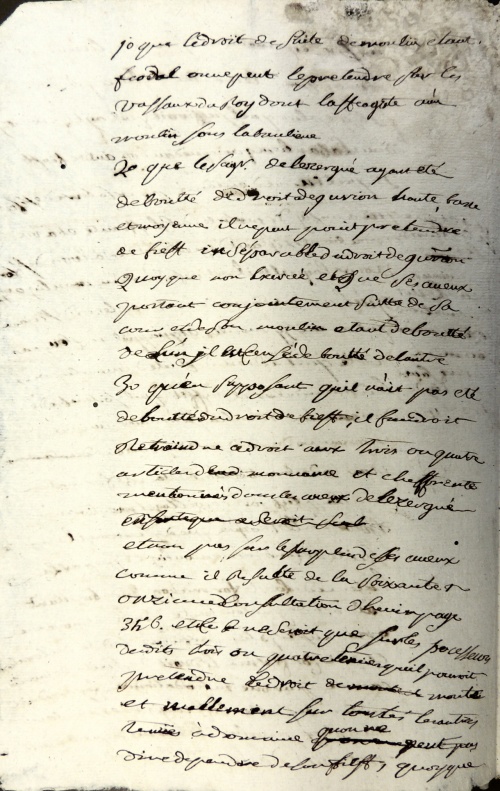 1o que le droit de suite de moulin etant
feodal on ne peut le pretendre sur les
vassaux du Roy dont laffeagiste a un
moulin sous la banlieue
2o que le sgr. de lezergué ayant eté
deboutté de droit de guion haute, basse
et moyenne il ne peut point pretendre
de fieff inséparable du droit de
Quoyque non exercée et que ses aveux
portant conjointement suitte de sa
cour et de son moulin etant deboutté
de l'un il est censé deboutté de l'autre
3o qu'en supposant quil n'ait pas eté
deboutté du droit de fieff, il faudroit
Retraindre ce droit aux trois ou quatre
articles et cheffrente
mentionnés dans les aveux de lezergué
et non pas sur le des aveux
comme il Resulte de la soixante
onzieme Consultation d'hevin page
346. et ce ne seroit que sur les possesseurs
desdits trois ou quatre quil pouroit
pretendre le droit de moute
et nullement sur toutes les autres
tenues à domaine quon ne peut pas
dire dependre de son fieff, quoyque